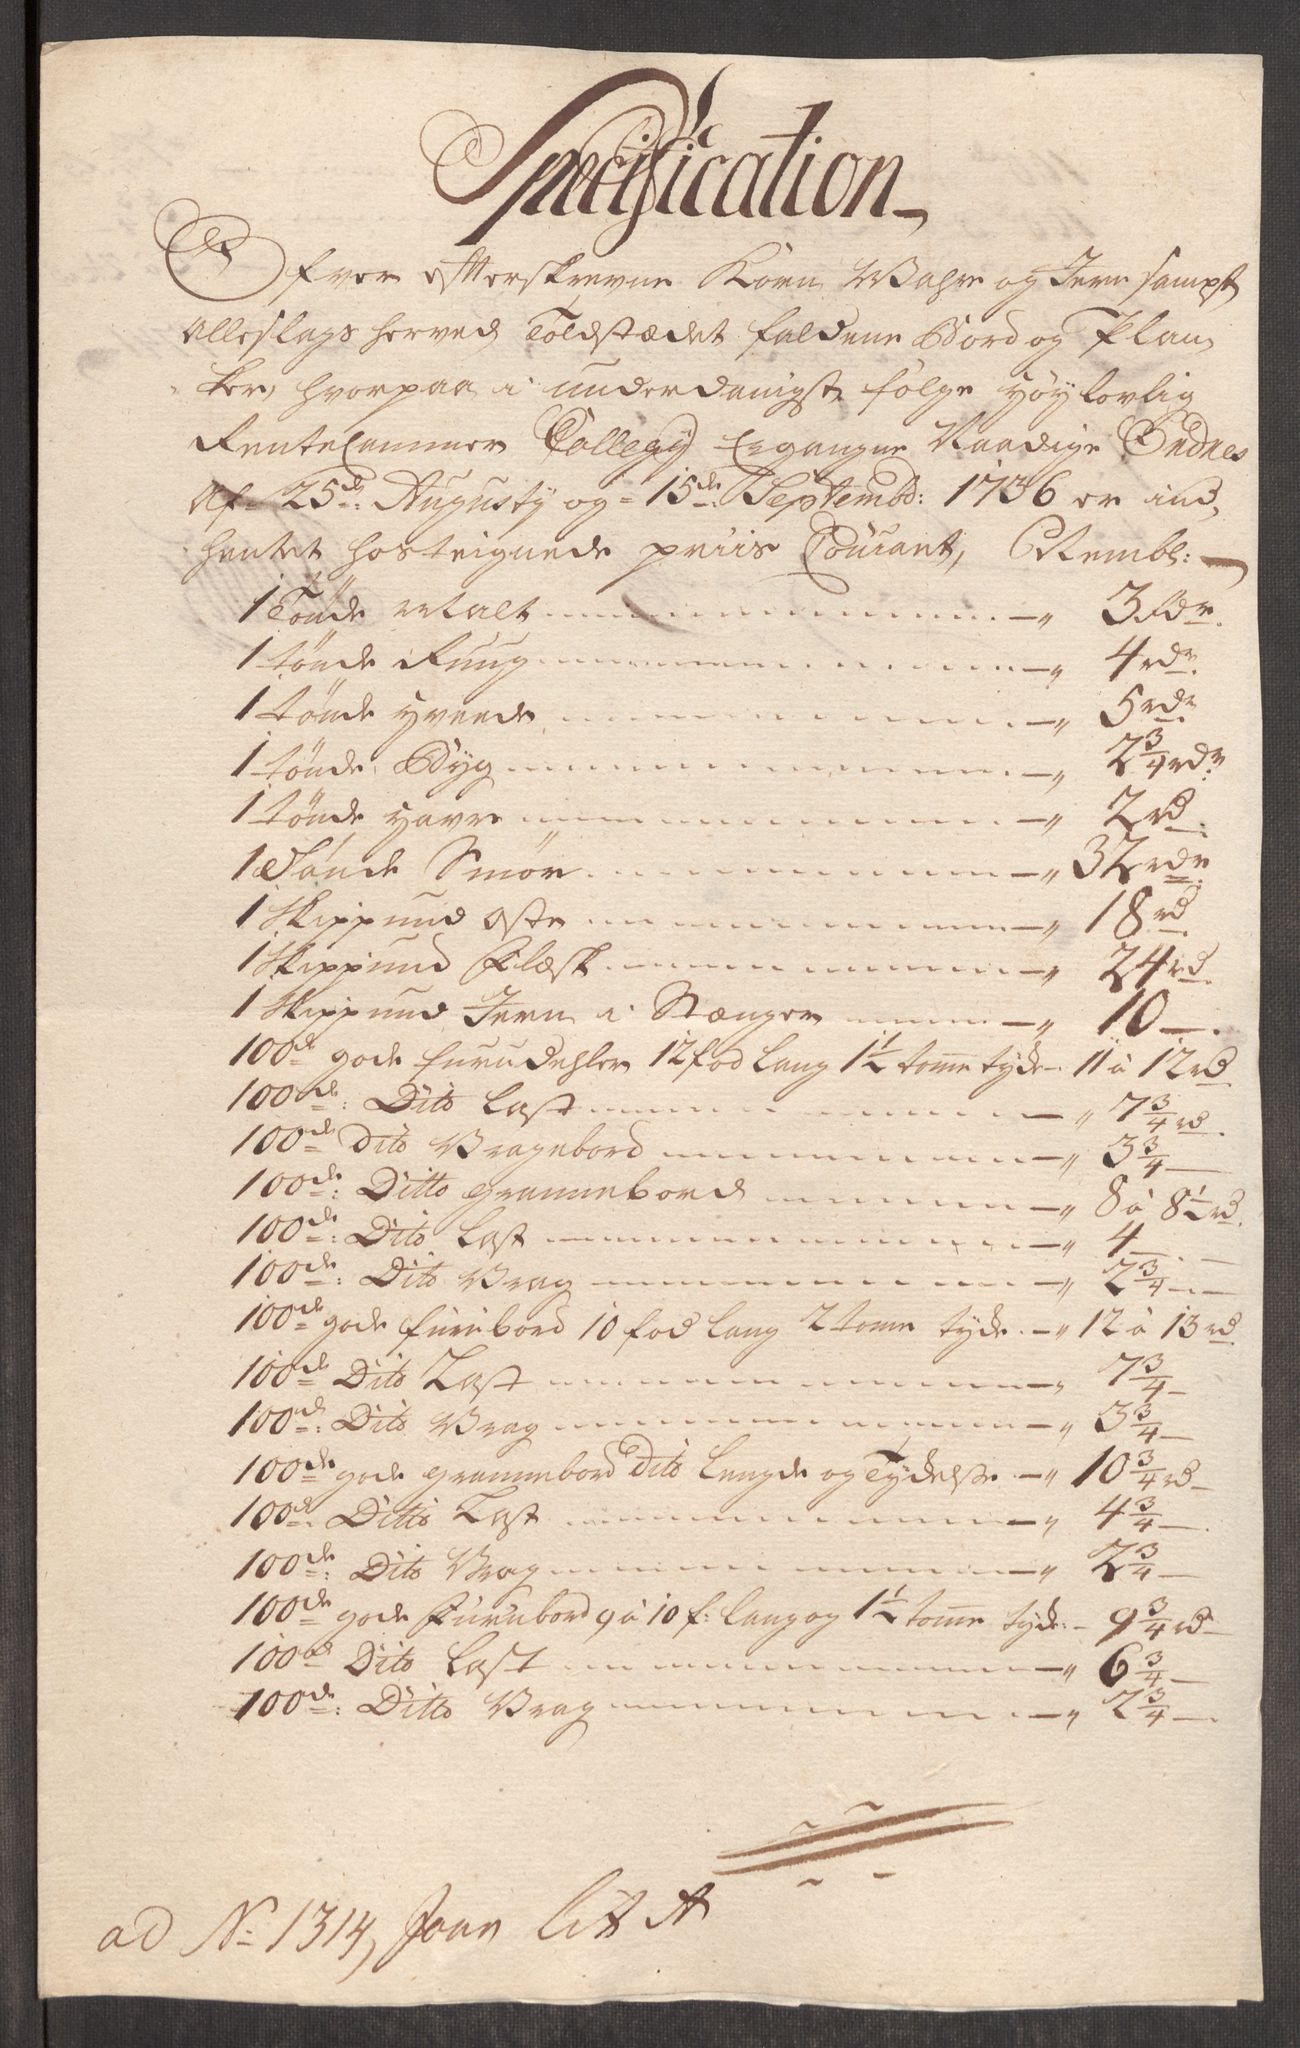 Specification
Ofver efterskrevne Korn Wahre og Jern sampt
Alleslags herved Toldstædet faldene Bord og Plan,
ker, hvorpaa i underdanigst følge Høylovlig
RenteCammer Collegy Ergangne Naadige Ordres
af 25de: Augusty og 15de: Septembr: 1736 er ind,
hentet hostegnede priis Courant, Nembl:
1 Tønde Malt 3 rdr.
1 tønde Ruug 4 rdr.
1 tønde Hveede 5 rdr
1 tønde Byg 2 3/4 rdr.
1 tønde Havre 2 rd.
1 Tønde Smør 32 rdr.
1 Skippund Oste 18 rd.
1 Skippund Flæsk 24 rd.
1 Skippund Jern i Stænger 10 —.
100de gode furudehler 12 fod lang 1 1/2 tomme tyde 11 à 12 rd
100de: Dito Last 7 3/4 rd.
100de Dito Vragebord 3 3/4 —
100de: Ditto grannebord 8 à 8 1/2 rd.
100de: Dito Last 4 —
100de: Dito Vrag 2 3/4 —
100de gode furubord 10 fod lang 2 tome tyde 12 à 13 rd.
100de Dito Last 7 3/4 —
100de: Dito Vrag 3 3/4 —
100de gode grannebord Dito Længde og Tydelse 10 3/4 rd
100de. Ditto Last 4 3/4 —.
100de: Dito Vrag 2 3/4 —
100de gode Furubord 9 à 10 f: lang og 1 1/2 tomme tyde 9 3/4 rd
100de Dito Last 6 3/4 —
100de: Ditto Vrag 2 3/4 —.
ad No 1314, Joan Lit A